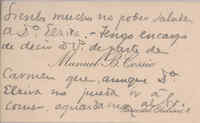 Siento mucho no poder saludar
a Dª Elvira. - Tengo encargo
de decir a Vd. de parte de
Manuel B. Cossío
Carmen que, aunque Dª
Elvira no pueda ir a
comer, aguardamos al Sr.